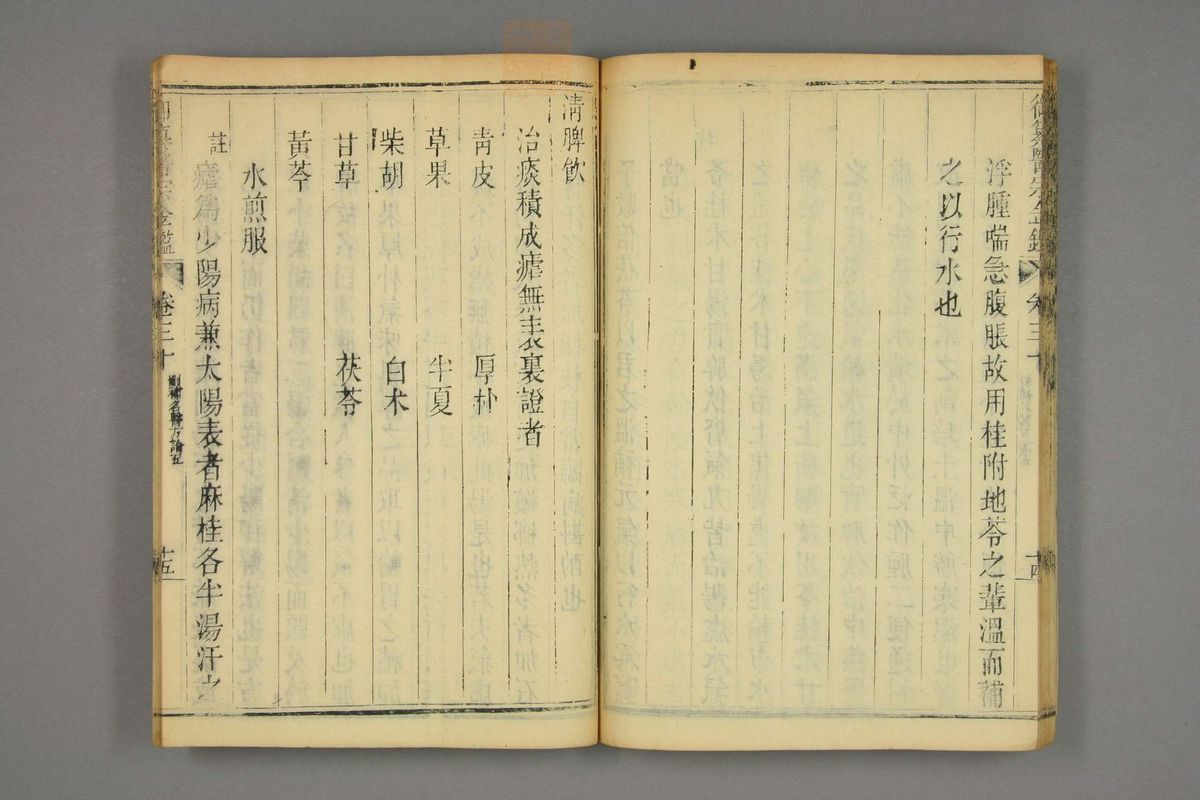 御纂醫宗金鑑 卷三十 十四
浮腫喘急腹脹故用桂附地苓之輩溫而補
之以行水也
清脾飲
治痰積成瘧無表裏證者
青皮 厚朴
草果 半夏
柴胡 白朮
甘草 茯苓
黃芩
水煎服
註 瘧爲少陽病兼太陽表者麻桂各半湯汗之
御纂醫宗金鑑 卷三十 刪補名醫方論五 十五